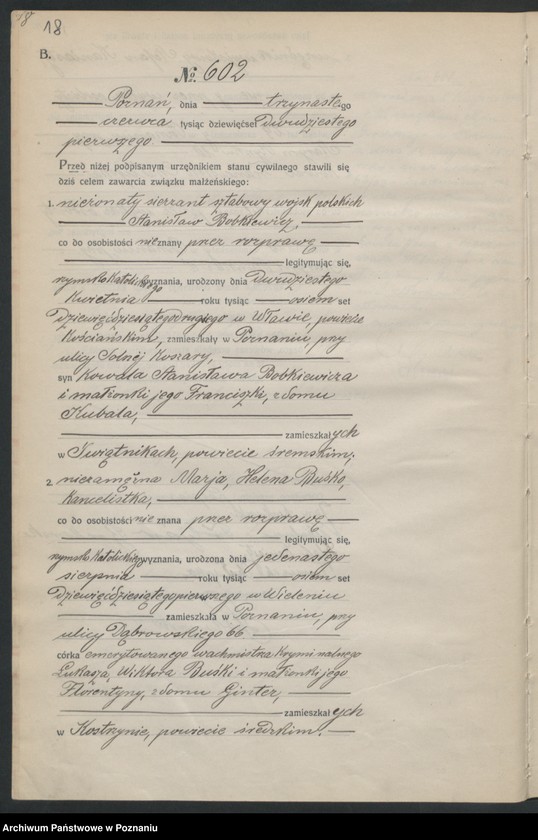 18
B.
№ 602
Poznań, dnia trzynastego
czerwca tysiąc dziewięćset dwudziestego
pierwszego
Przed niżej podpisanym urzędnikiem stanu cywilnego stawili się
dziś celem zawarcia związku małżeńskiego:
1. nieżonaty sierżant sztabowy wojsk polskich
Stanisław Bobkiewicz,
co do osobistości nieznany przez rozprawę
legitymując się,
rzymsko katolickiego wyznania, urodzony dnia dwudziestego
kwietnia roku tysiąc ośiem set
dziewięćdziesiątego drugiego w Wławie, powiecie
Kościańskim, zamieszkały w Poznaniu, przy
ulicy Solnej Koszary,
syn kowala Stanisława Bobkiewicza
i małżonki jego Franciszki, z domu
Kubala,
zamieszkałych
w Świątnikach, powiecie śremskim;
2. niezamężna Marja, Helena Buśko,
kancelistka,
co do osobistości nieznana przez rozprawę
legitymując się,
rzymsko katolickiego wyznania, urodzona dnia jedenastego
sierpnia roku tysiąc ośiem set
dziewięćdziesiątego pierwszego w Wieleniu
zamieszkała w Poznaniu, przy
ulicy Dąbrowskiego 66.
córka emerytowanego wachmistrza kryminalnego
Łukasza, Wiktora Buśki i małżonki jego
Florentyny, z domu Ginter,
zamieszkałych
w Kostrzynie, powiecie średzkim.
Archiwum Państwowe w Poznaniu